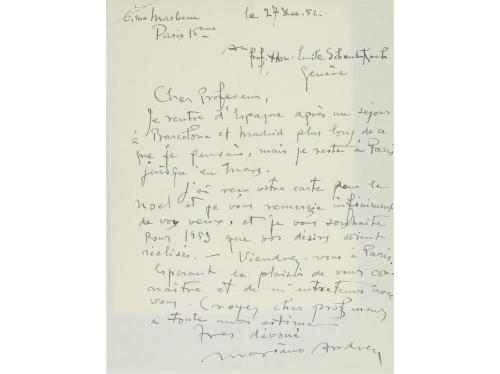 6, rue Marbeau
Paris 16ème
le 27 Dec. 52.
au
Prof. Hon. Emile
Genève
Cher Professeur,
Je rentre d'Espagne après un séjour
à Barcelona et Madrid plus long de ce
que je pensais, mais je reste à Paris
jusqu'en Mars.
J'ai reçu votre carte pour la
Noel et je vous remercie infiniment
de vos veux, et je vous souhaite
pour 1953 que vos désirs soient
réalisés. — Viendrez-vous à Paris,
Esperant le plaisir de vous con-
naître et de m'entretenir avec
vous. Croyez cher professeur
a toute mon estime
Très dévoué
Mariano Andreu